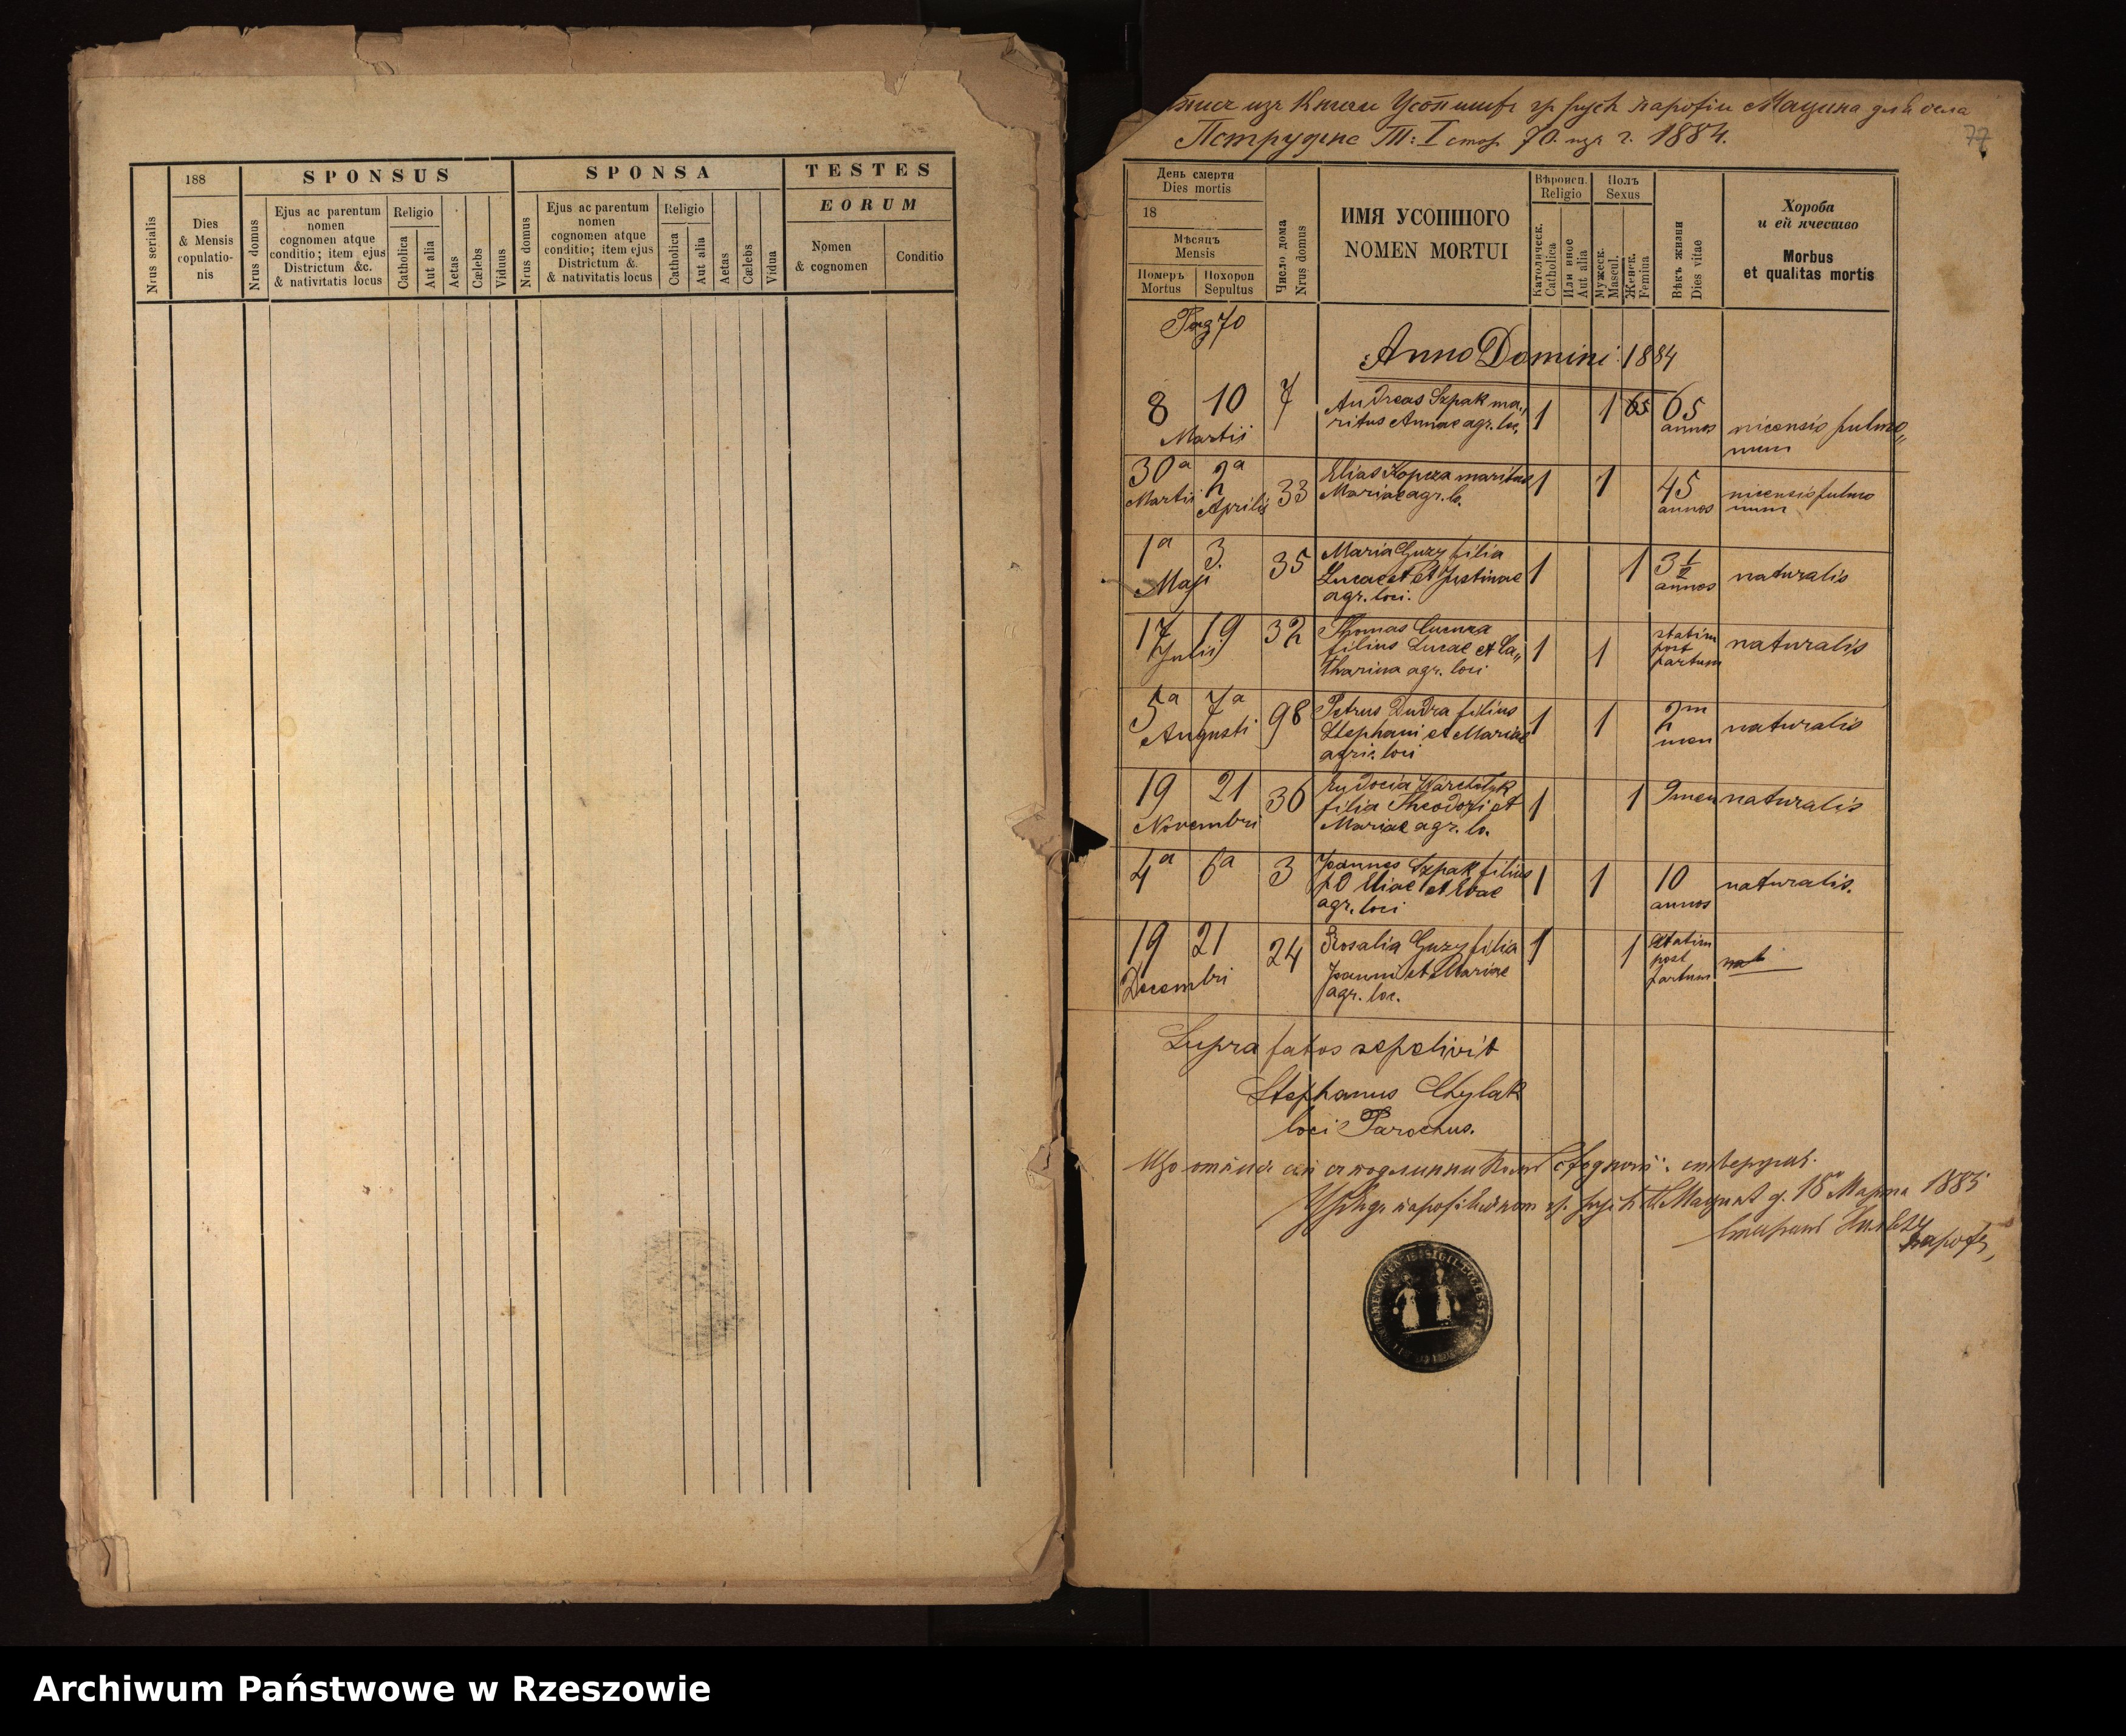 188
SPONSUS
SPONSA
TESTES
EORUM
Nrus serialis
Dies
& Mensis
copulatio-
nis
Nrus domus
Ejus ac parentum
nomen
cognomen atque
conditio; item ejus
Districtum &c.
& nativitatis locus
Religio
Catholica
Aut alia
Aetas
Cælebs
Viduus
Nrus domus
Ejus ac parentum
nomen
cognomen atque
conditio; item ejus
Districtum &.
& nativitatis locus
Religio
Catholica
Aut alia
Aetas
Cælebs
Vidua
Nomen
& cognomen
Conditio
изъ Книги парофіи Мацина для села
Пструдне Т: I стор. 70. изъ г. 1884.
77
День смерти
Dies mortis
18
Мѣсяцъ
Mensis
Померъ
Mortus
Похорон
Sepultus
Число дома
Nrus domus
ИМЯ УСОПШОГО
NOMEN MORTUI
Вѣроисп.
Religio
Католическ.
Catholica
Или иное
Aut alia
Полъ
Sexus
Мужеск.
Mascul.
Женск.
Femina
Вѣкъ жизни
Dies vitae
Хороба
и ей ячество
Morbus
et qualitas mortis
Pag 70
Anno Domini 1884
8 10 7 Andreas Szpak ma„ 1 1 65 65
Martii ritus Annae agr. loc. annos pulmo„
num
30a 2a 33 Elias Kopcza maritus 1 1 45
Martii Aprilis Mariae agr. lo. annos pulmo
num
1a 3. 35 Maria Guzy filia 1 1 3½ naturalis
Maji Lucae et Justinae annos
agr. loci.
17 19 32 Thomas filius Lucae et Ca„ 1 1 statim naturalis
Julii tharina agr. loci post
partum
5a 7a 98 Petrus Dudra filius 1 1 2m naturalis
Augusti Stephani et Mariae men
agric. loci
19 21 36 Eudocia 1 1 9 men naturalis
Novembri filia Theodori et
Mariae agr. lo.
4a 6a 3 Joannes Szpak filius 1 1 10 naturalis.
Eliae et Evae annos
agr. loci
19 21 24 Rosalia Guzy filia 1 1 statim nat
Decembri Joanni et Mariae post
agr. loc. partum
Supra fatos sepelivit
Stephanus Chylak
loci Parochus.
Що
18 Марта 1885
Archiwum Państwowe w Rzeszowie